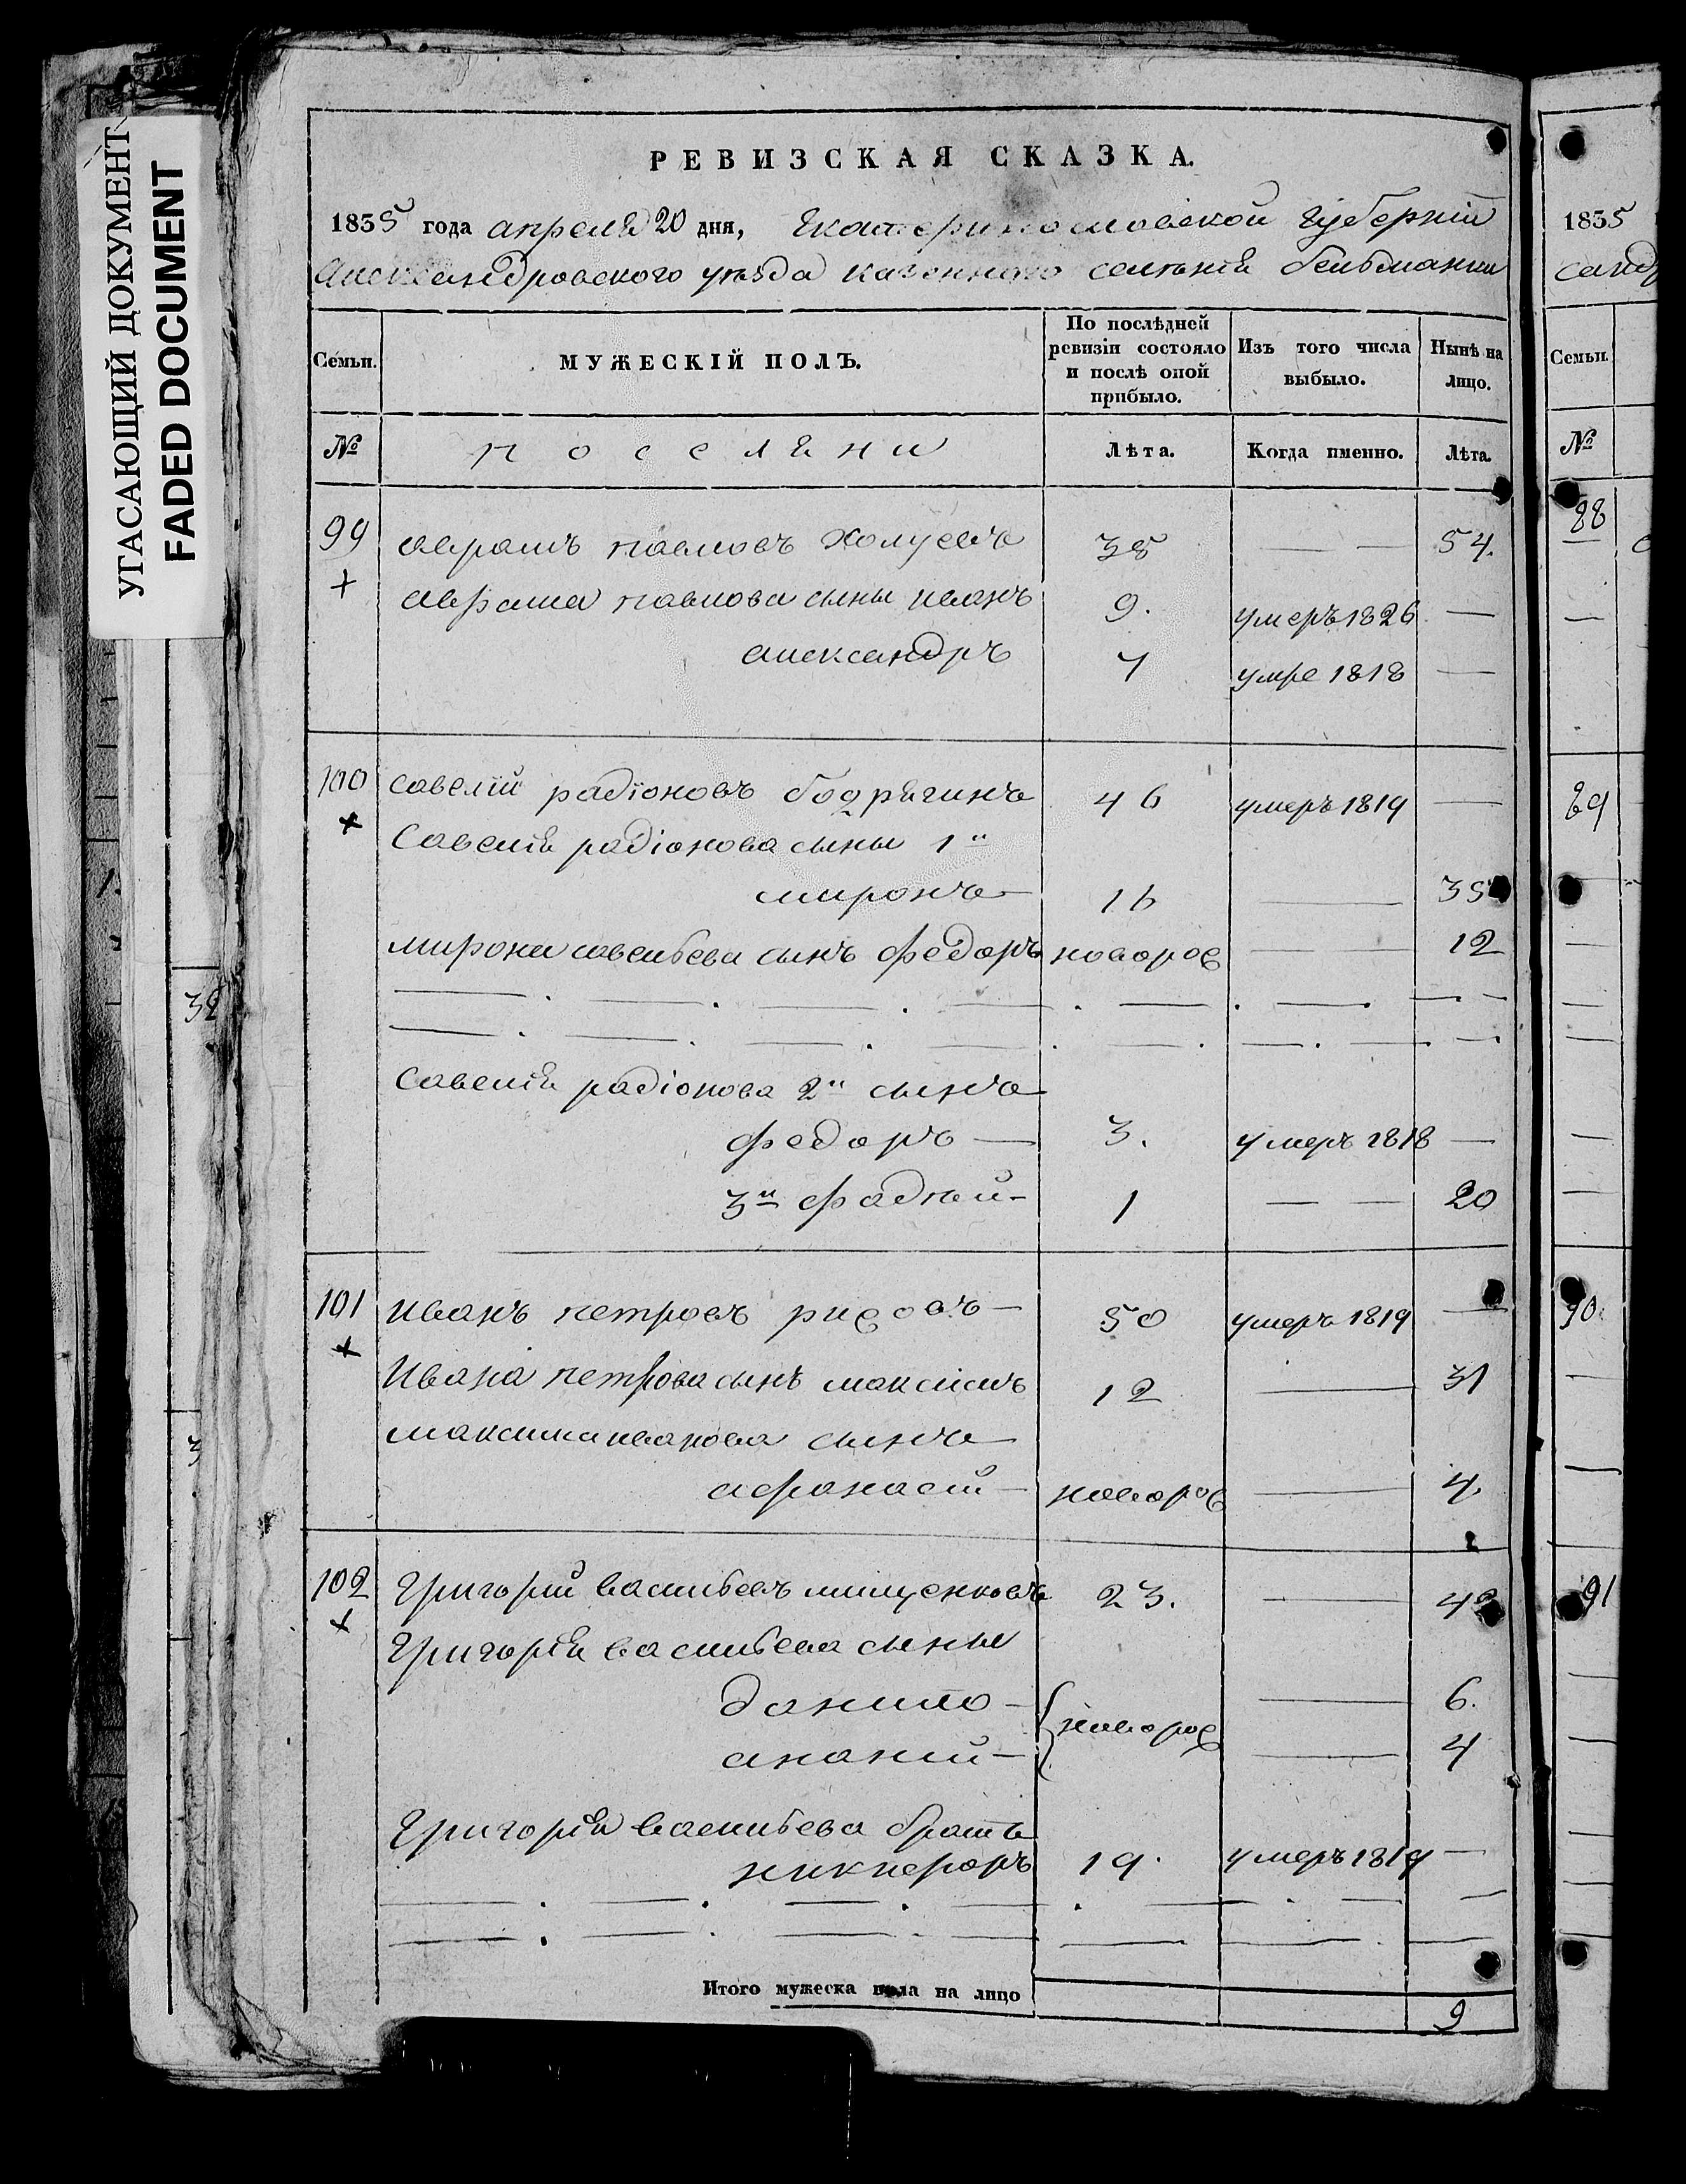 УГАСАЮЩИЙ ДОКУМЕНТ
FADED DOCUMENT
РЕВИЗСКАЯ СКАЗКА.
1835 года апреля 20 дня, Екатеринословской губернiи
Александровского уѣзда казенного селѣнiя бельманки
Семьи.
МУЖЕСКIЙ ПОЛЪ.
По послѣдней ревизiи состояло и послѣ оной прибыло.
Изъ того числа выбыло.
Нынѣ на лицо.
№ поселяни Лѣта. Когда именно. Лѣта.
99 аврамъ павловъ холуевъ 35 — — 54.
+ аврама павлова сыны иванъ 9. умеръ 1826 —
александръ 7 умре 1818 —
100 савелiй радiоновъ 46 умеръ 1819 —
+ Савелiя радiонова сыны 1й
миронъ 16 — 35
мирона савельева сынъ федоръ новорож — 12
савелiя радiонова 2й сынъ
федоръ — 3. умеръ 1818 —
3й фадѣй 1 — — 20
101 иванъ петровъ 50 умеръ 1819 —
+ Ивана петрова сынъ максимъ 12 — 31
максима иванова сынъ
афонасiй новорож — 4
102 Григорiй васильевъ мищенковъ 23. — 42
+ Григорiя васильева сыны
данило { новорож — 6.
ананiй — 4
Григорiя васильева братъ
никифоръ 19. умеръ 1819 —
Итого мужеска пола на лицо 9
1835
Семьи.
№
88
89
90.
91